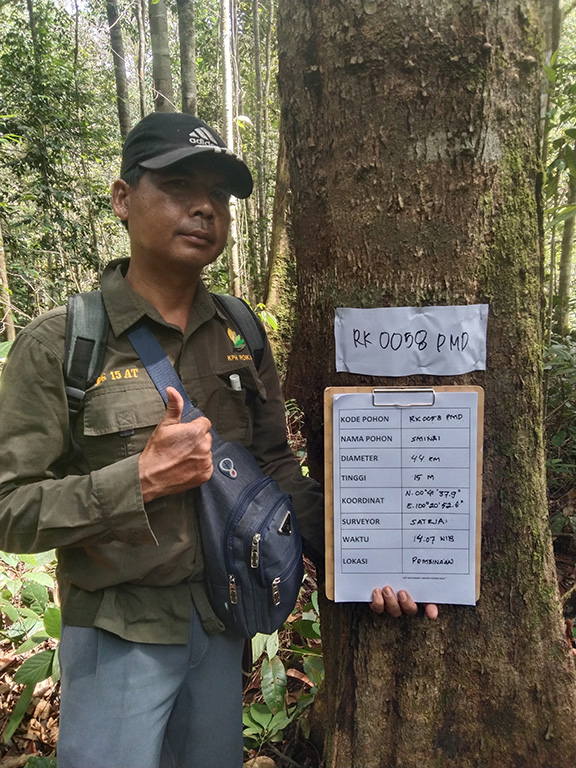 adidas
RK 0058 PMD
KPH ROKA
15 AT
KODE POHON RK 0058 PMD
NAMA POHON SMINAI
DIAMETER 44 cm
TINGGI 15 M
KOORDINAT N.00°41'37.9"
E.100°20'52.6"
SURVEYOR
WAKTU 14.07 WIB
LOKASI PEMBINAAN